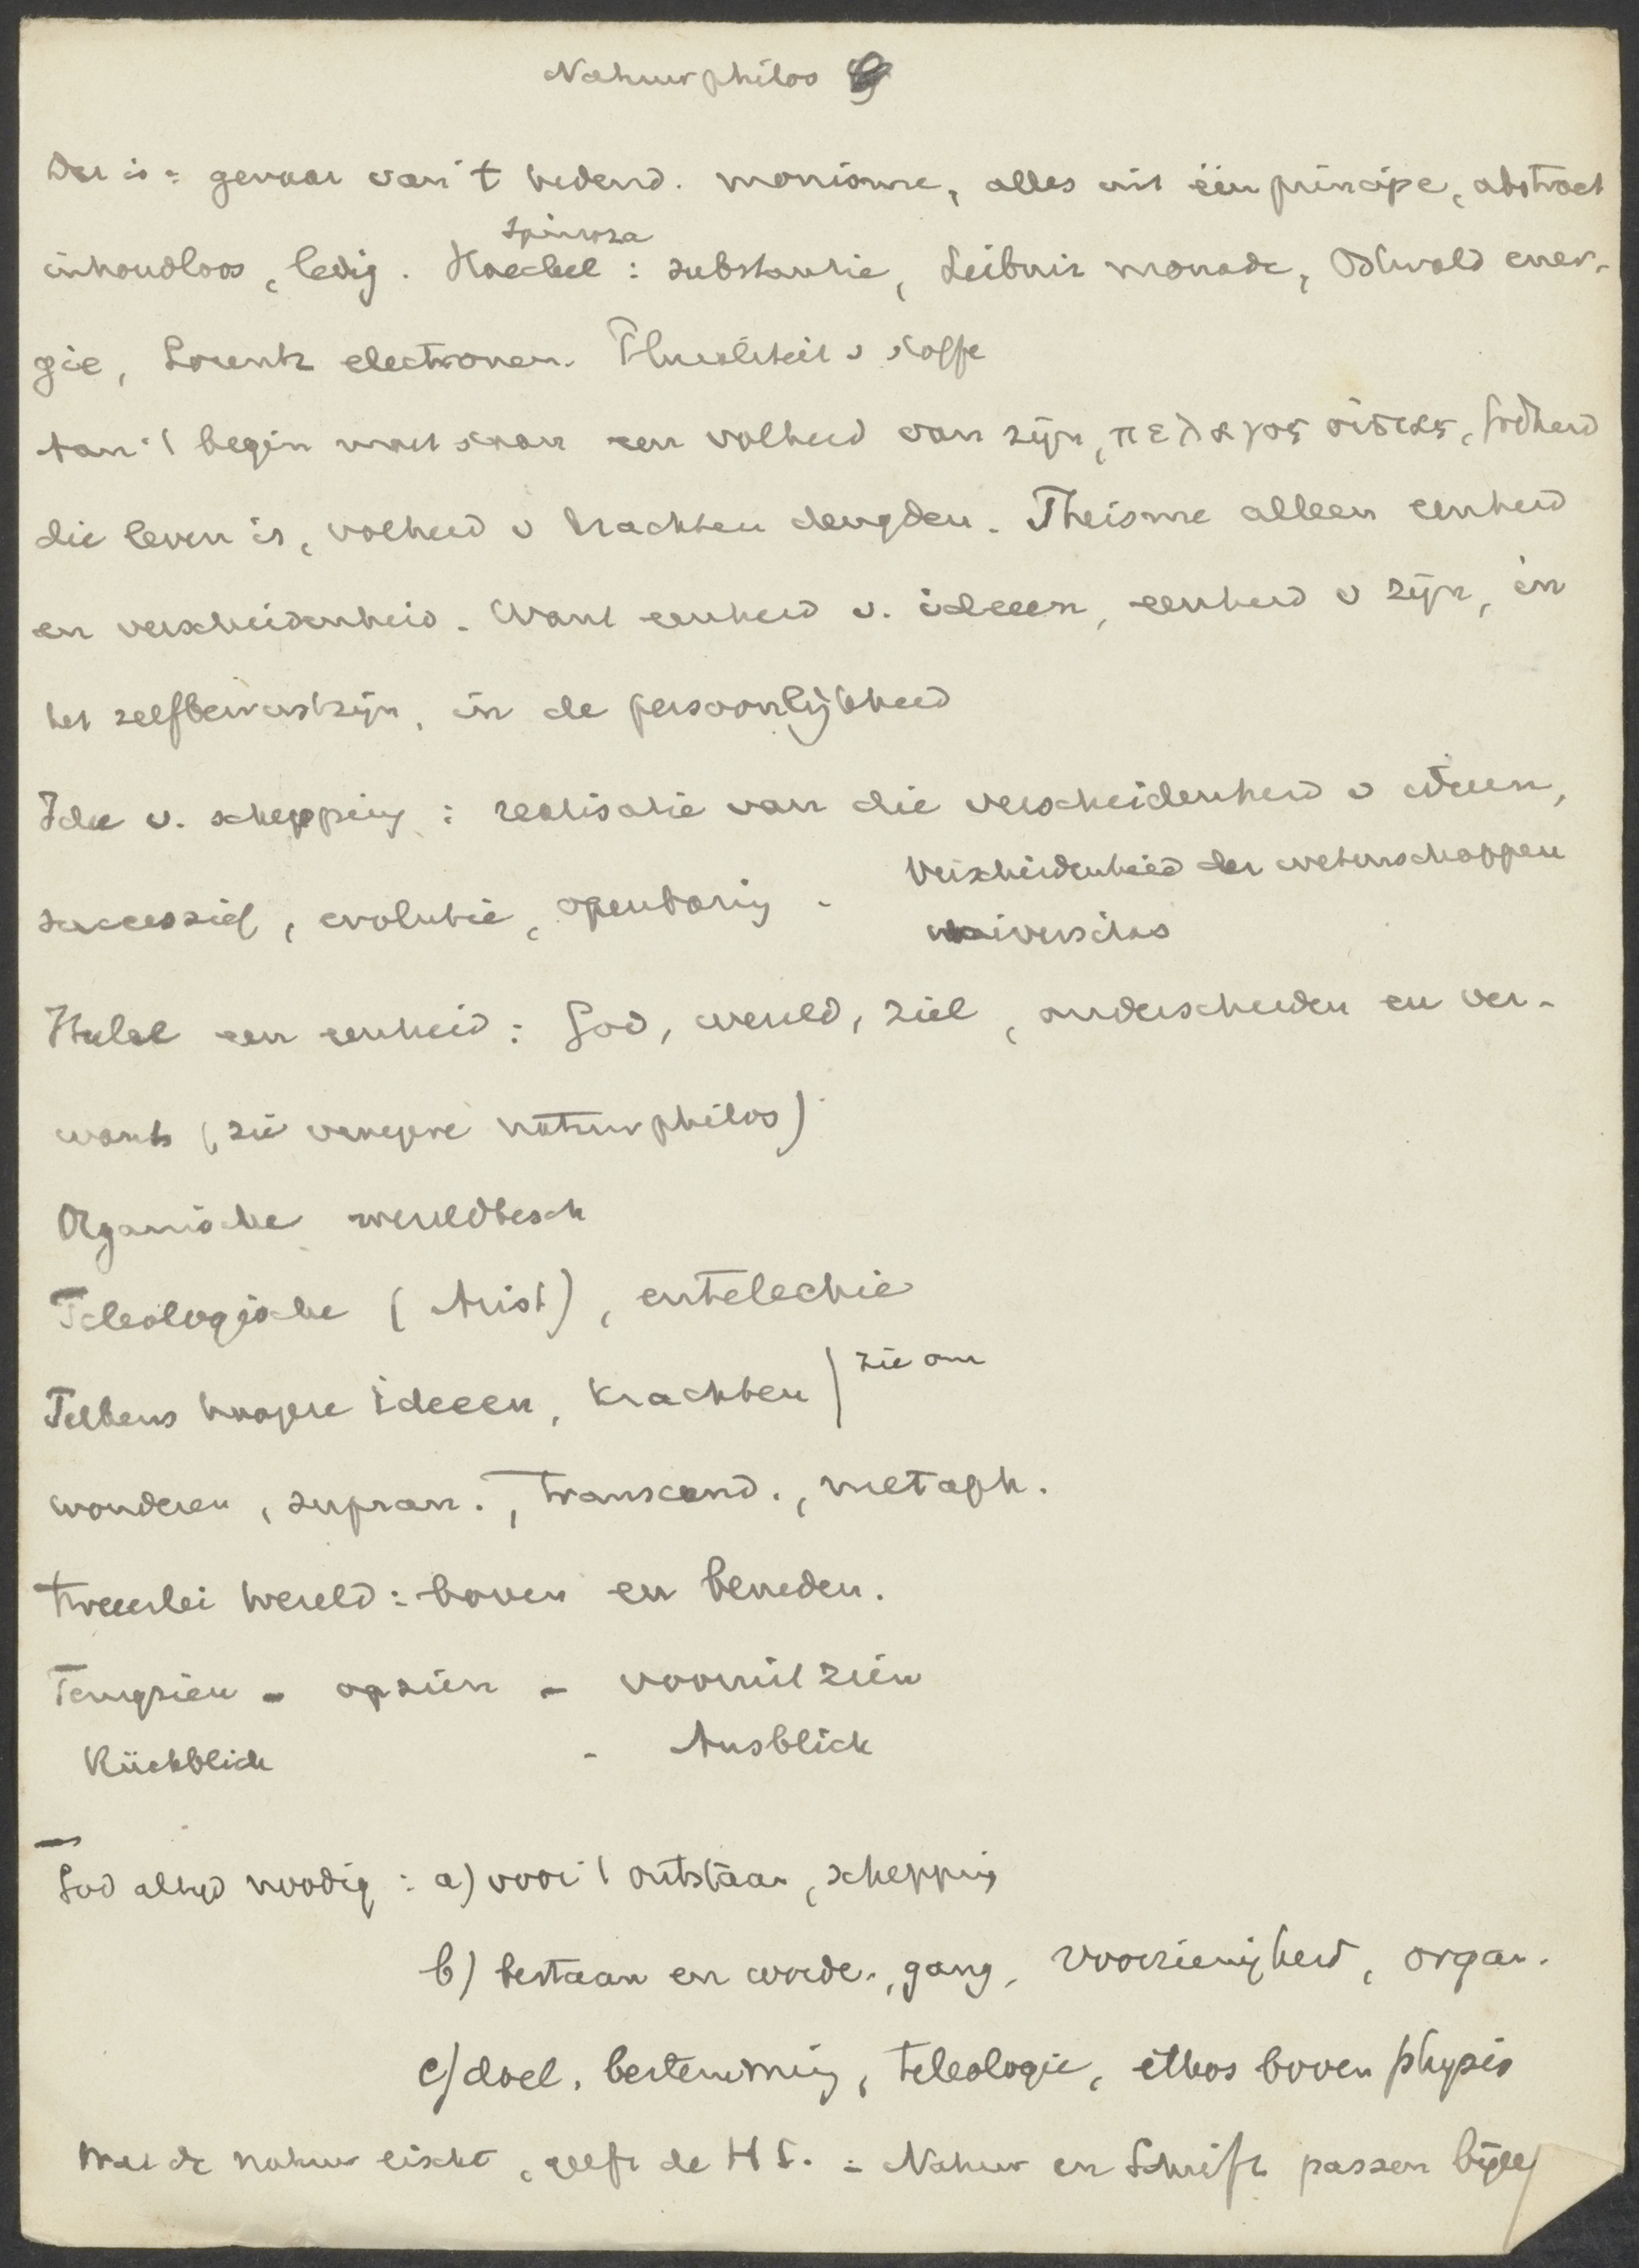 Natuurphilos
Dat is = gevaar van 't hedend. monisme, alles uit één principe, abstract
Spinoza
inhoudloos, ledig. Haeckel : substantie, Leibniz monade, Ostwald ener-
gie, Lorentz electronen. Pluraliteit v stoffe
Aan 't begin moet staan een volheid van zijn, πελαγος οὐσίας, Godheid
die leven is, volheid v krachten deugden. Theisme alleen eenheid
en verscheidenheid. Want eenheid v. ideeen, eenheid v zijn, in
het zelfbewustzijn, in de persoonlijkheid
Idee v. schepping : realisatie van die verscheidenheid v ideeen,
successief, evolutie, openbaring .
Verscheidenheid der wetenschappen
universitas
Heelal een eenheid : God, wereld, ziel, onderscheiden en ver-
want (zie natuurphilos)
Organische wereldbesch
Teleologische (Arist), entelechie
Telkens hoogere ideeen, krachten ) zie om
wonderen, supran., transcend., metaph.
Tweeerlei wereld : boven en beneden.
Terugzien - opzien - vooruitzien
Rückblick - Ausblick
God altijd noodig : a) voor 't ontstaan, schepping
b) bestaan en worden, gang, voorzienigheid, organ.
c) doel, bestemming, teleologie, ethos boven physis
Wat de natuur eischt, geeft de H S. = Natuur en Schrift passen bijeen